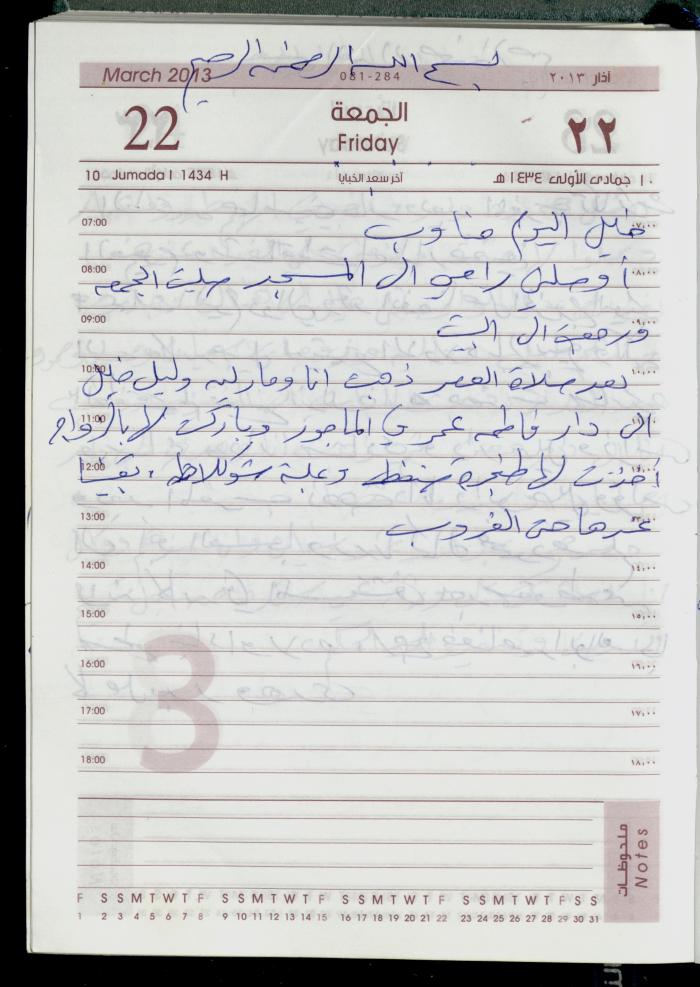 بسم الله الرحمن الرحيم
March 2013 081-284 آذار ٢٠١٣
22 الجمعة ٢٢
Friday
10 Jumada I 1434 H آخر سعد الخبايا ١٠ جمادى الأولى ١٤٣٤ هـ
07:00 خليل اليوم مناوب ٠٧:٠٠
08:00 أوصلني رامي الى المسجد صليت الجمعه ٠٨:٠٠
09:00 ورجعت الى البيت ٠٩:٠٠
10:00 بعد صلاة العصر ذهبت انا ومارليه وليل خليل ١٠:٠٠
11:00 الى دار فاطمه عمر في الماجور وباركت لها بالزواج ١١:٠٠
12:00 أخذت لها طنجرة ضغط وعلبة شوكلاطه . بقينا ١٢:٠٠
13:00 عندها حتى الغروب ١٣:٠٠
14:00 ١٤:٠٠
15:00 ١٥:٠٠
16:00 ١٦:٠٠
17:00 ١٧:٠٠
18:00 ١٨:٠٠
3
ملحوظات
Notes
F S S M T W T F S S M T W T F S S M T W T F S S M T W T F S S
1 2 3 4 5 6 7 8 9 10 11 12 13 14 15 16 17 18 19 20 21 22 23 24 25 26 27 28 29 30 31